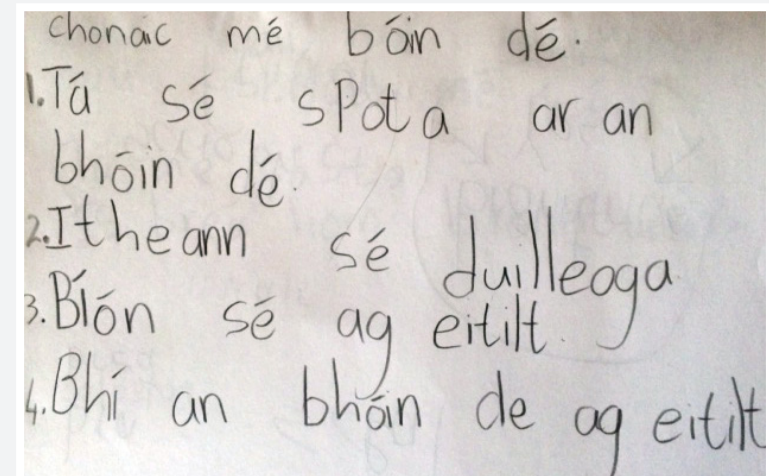 chonaic mé bóin dé.
1. Tá sé spota ar an
bhóin dé.
2. Itheann sé duilleoga
3. Bíón sé ag eitilt.
4. Bhí an bhóin de ag eitilt